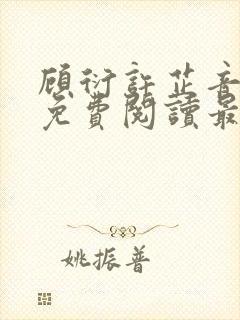 顾衍許芷音
免費閱讀最
姚振普